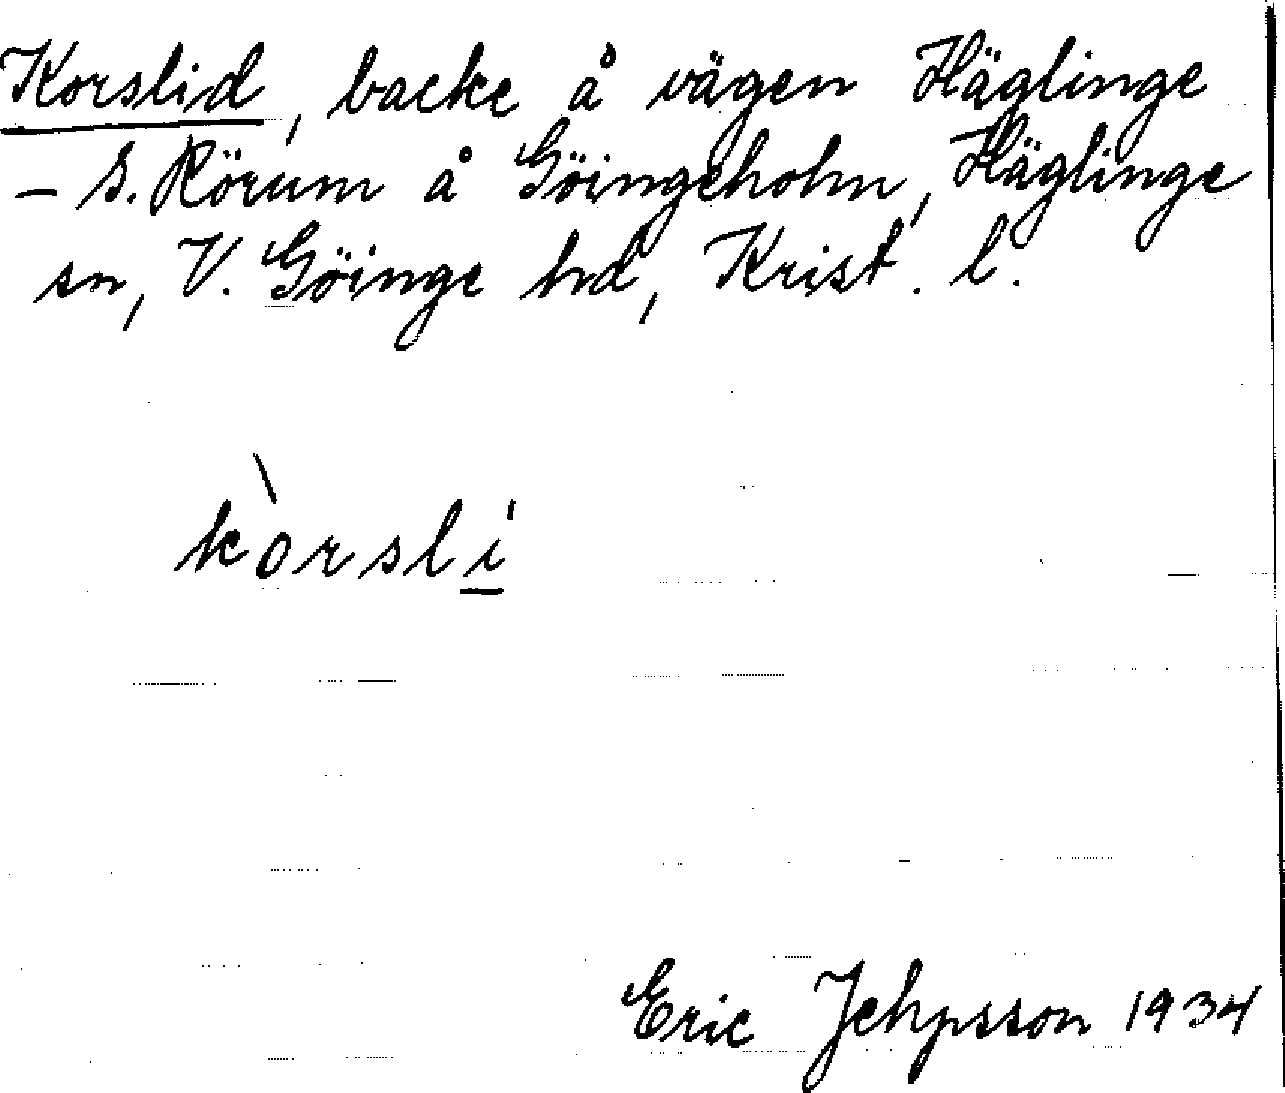 Korslid, backe å vägen Häglinge
– S. Rörum å Göingeholm, Häglinge
sn, V. Göinge hd, Krist. l.
kòrslí
Eric Jehpsson 1934